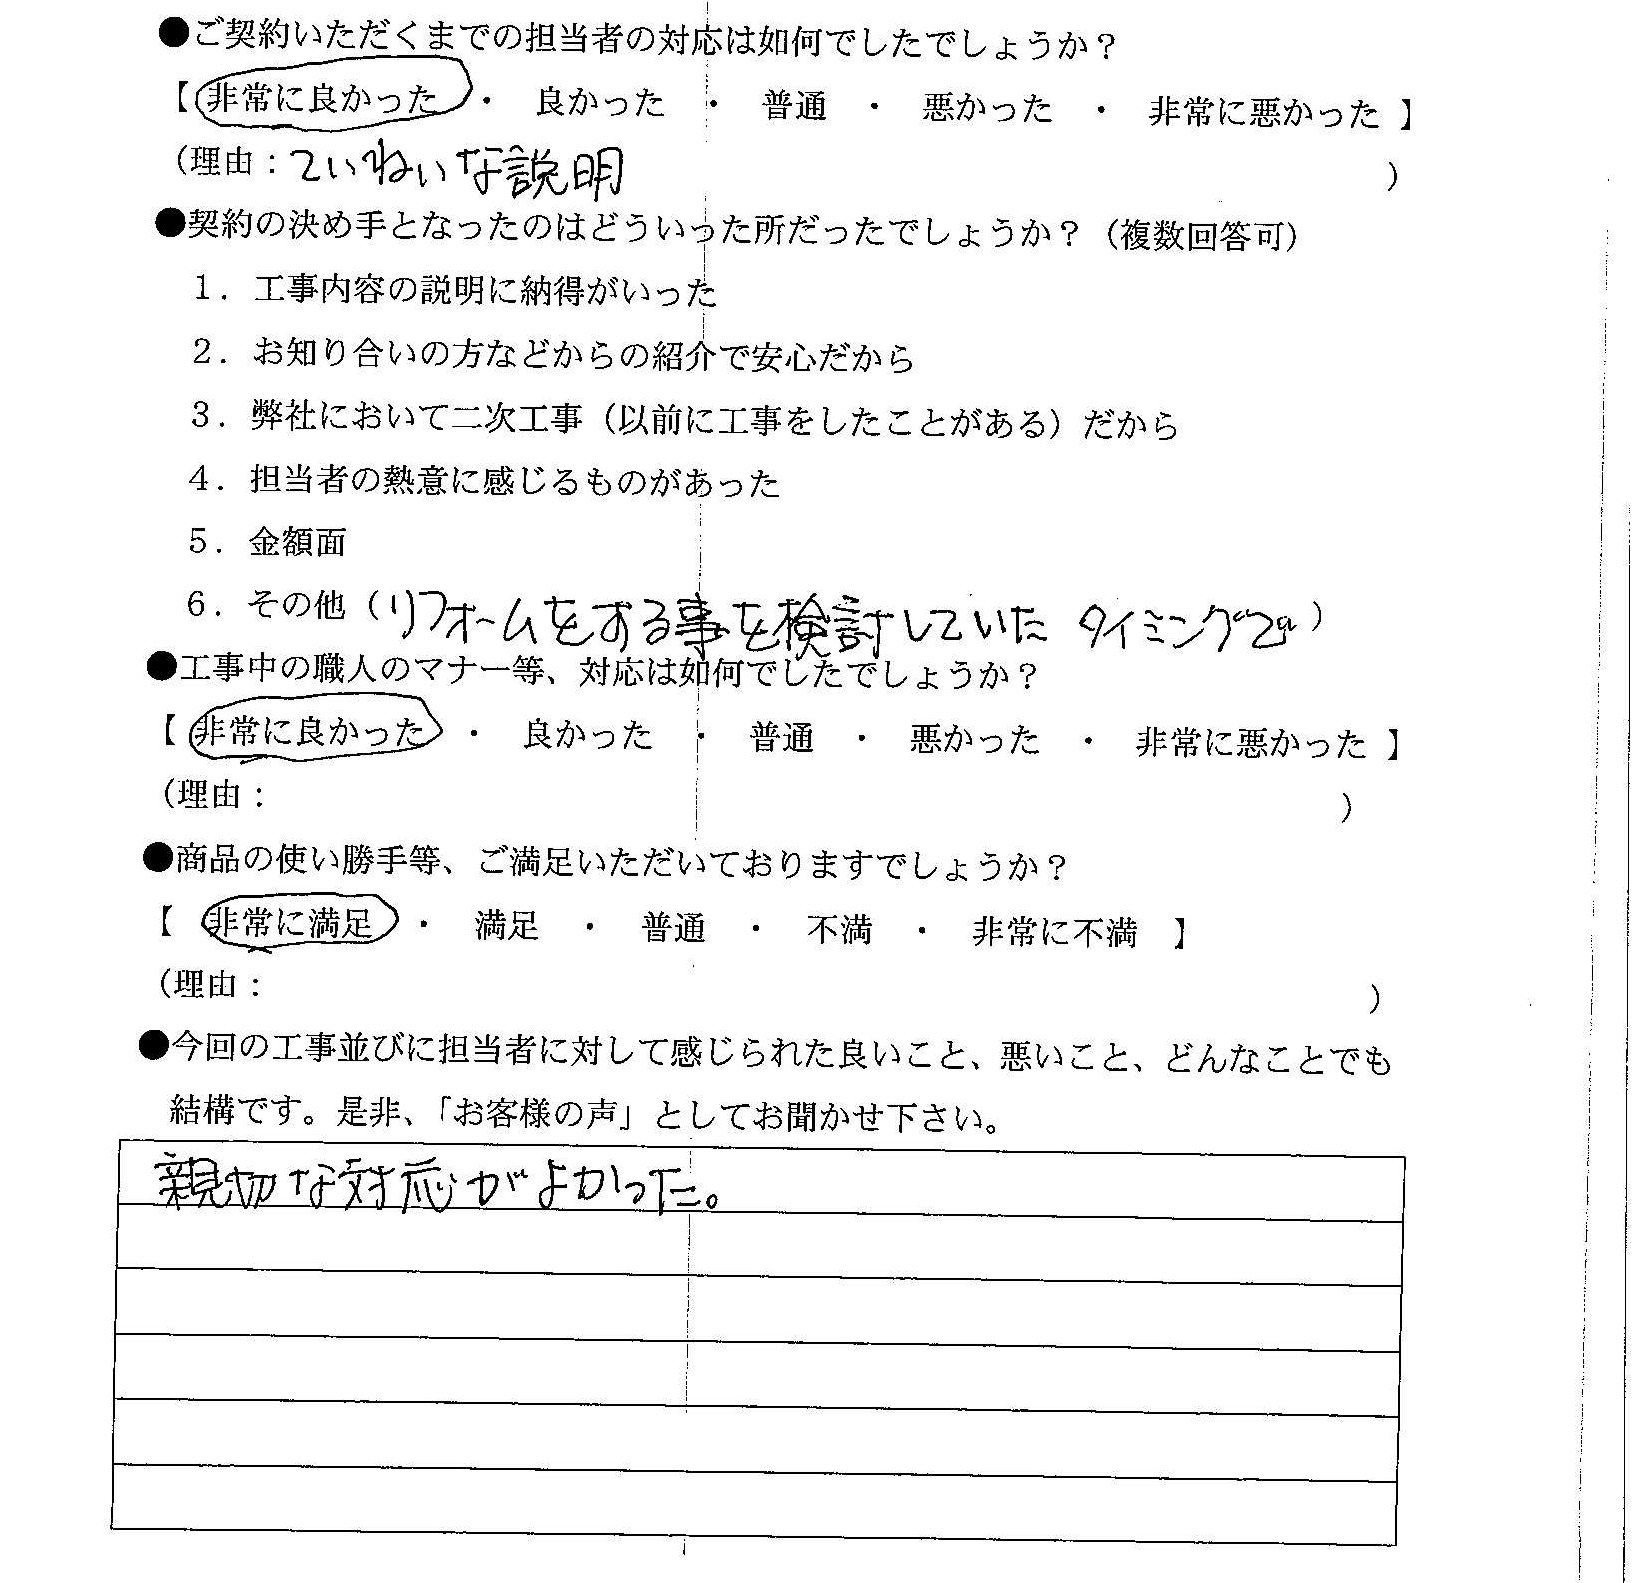 ●ご契約いただくまでの担当者の対応は如何でしたでしょうか？
【 非常に良かった ・ 良かった ・ 普通 ・ 悪かった ・ 非常に悪かった 】
（理由：ていねいな説明 ）
●契約の決め手となったのはどういった所だったでしょうか？（複数回答可）
１．工事内容の説明に納得がいった
２．お知り合いの方などからの紹介で安心だから
３．弊社において二次工事（以前に工事をしたことがある）だから
４．担当者の熱意に感じるものがあった
５．金額面
６．その他（リフォームをする事を検討していた タイミングで）
●工事中の職人のマナー等、対応は如何でしたでしょうか？
【 非常に良かった ・ 良かった ・ 普通 ・ 悪かった ・ 非常に悪かった 】
（理由： ）
●商品の使い勝手等、ご満足いただいておりますでしょうか？
【 非常に満足 ・ 満足 ・ 普通 ・ 不満 ・ 非常に不満 】
（理由： ）
●今回の工事並びに担当者に対して感じられた良いこと、悪いこと、どんなことでも
結構です。是非、「お客様の声」としてお聞かせ下さい。
親切な対応がよかった。